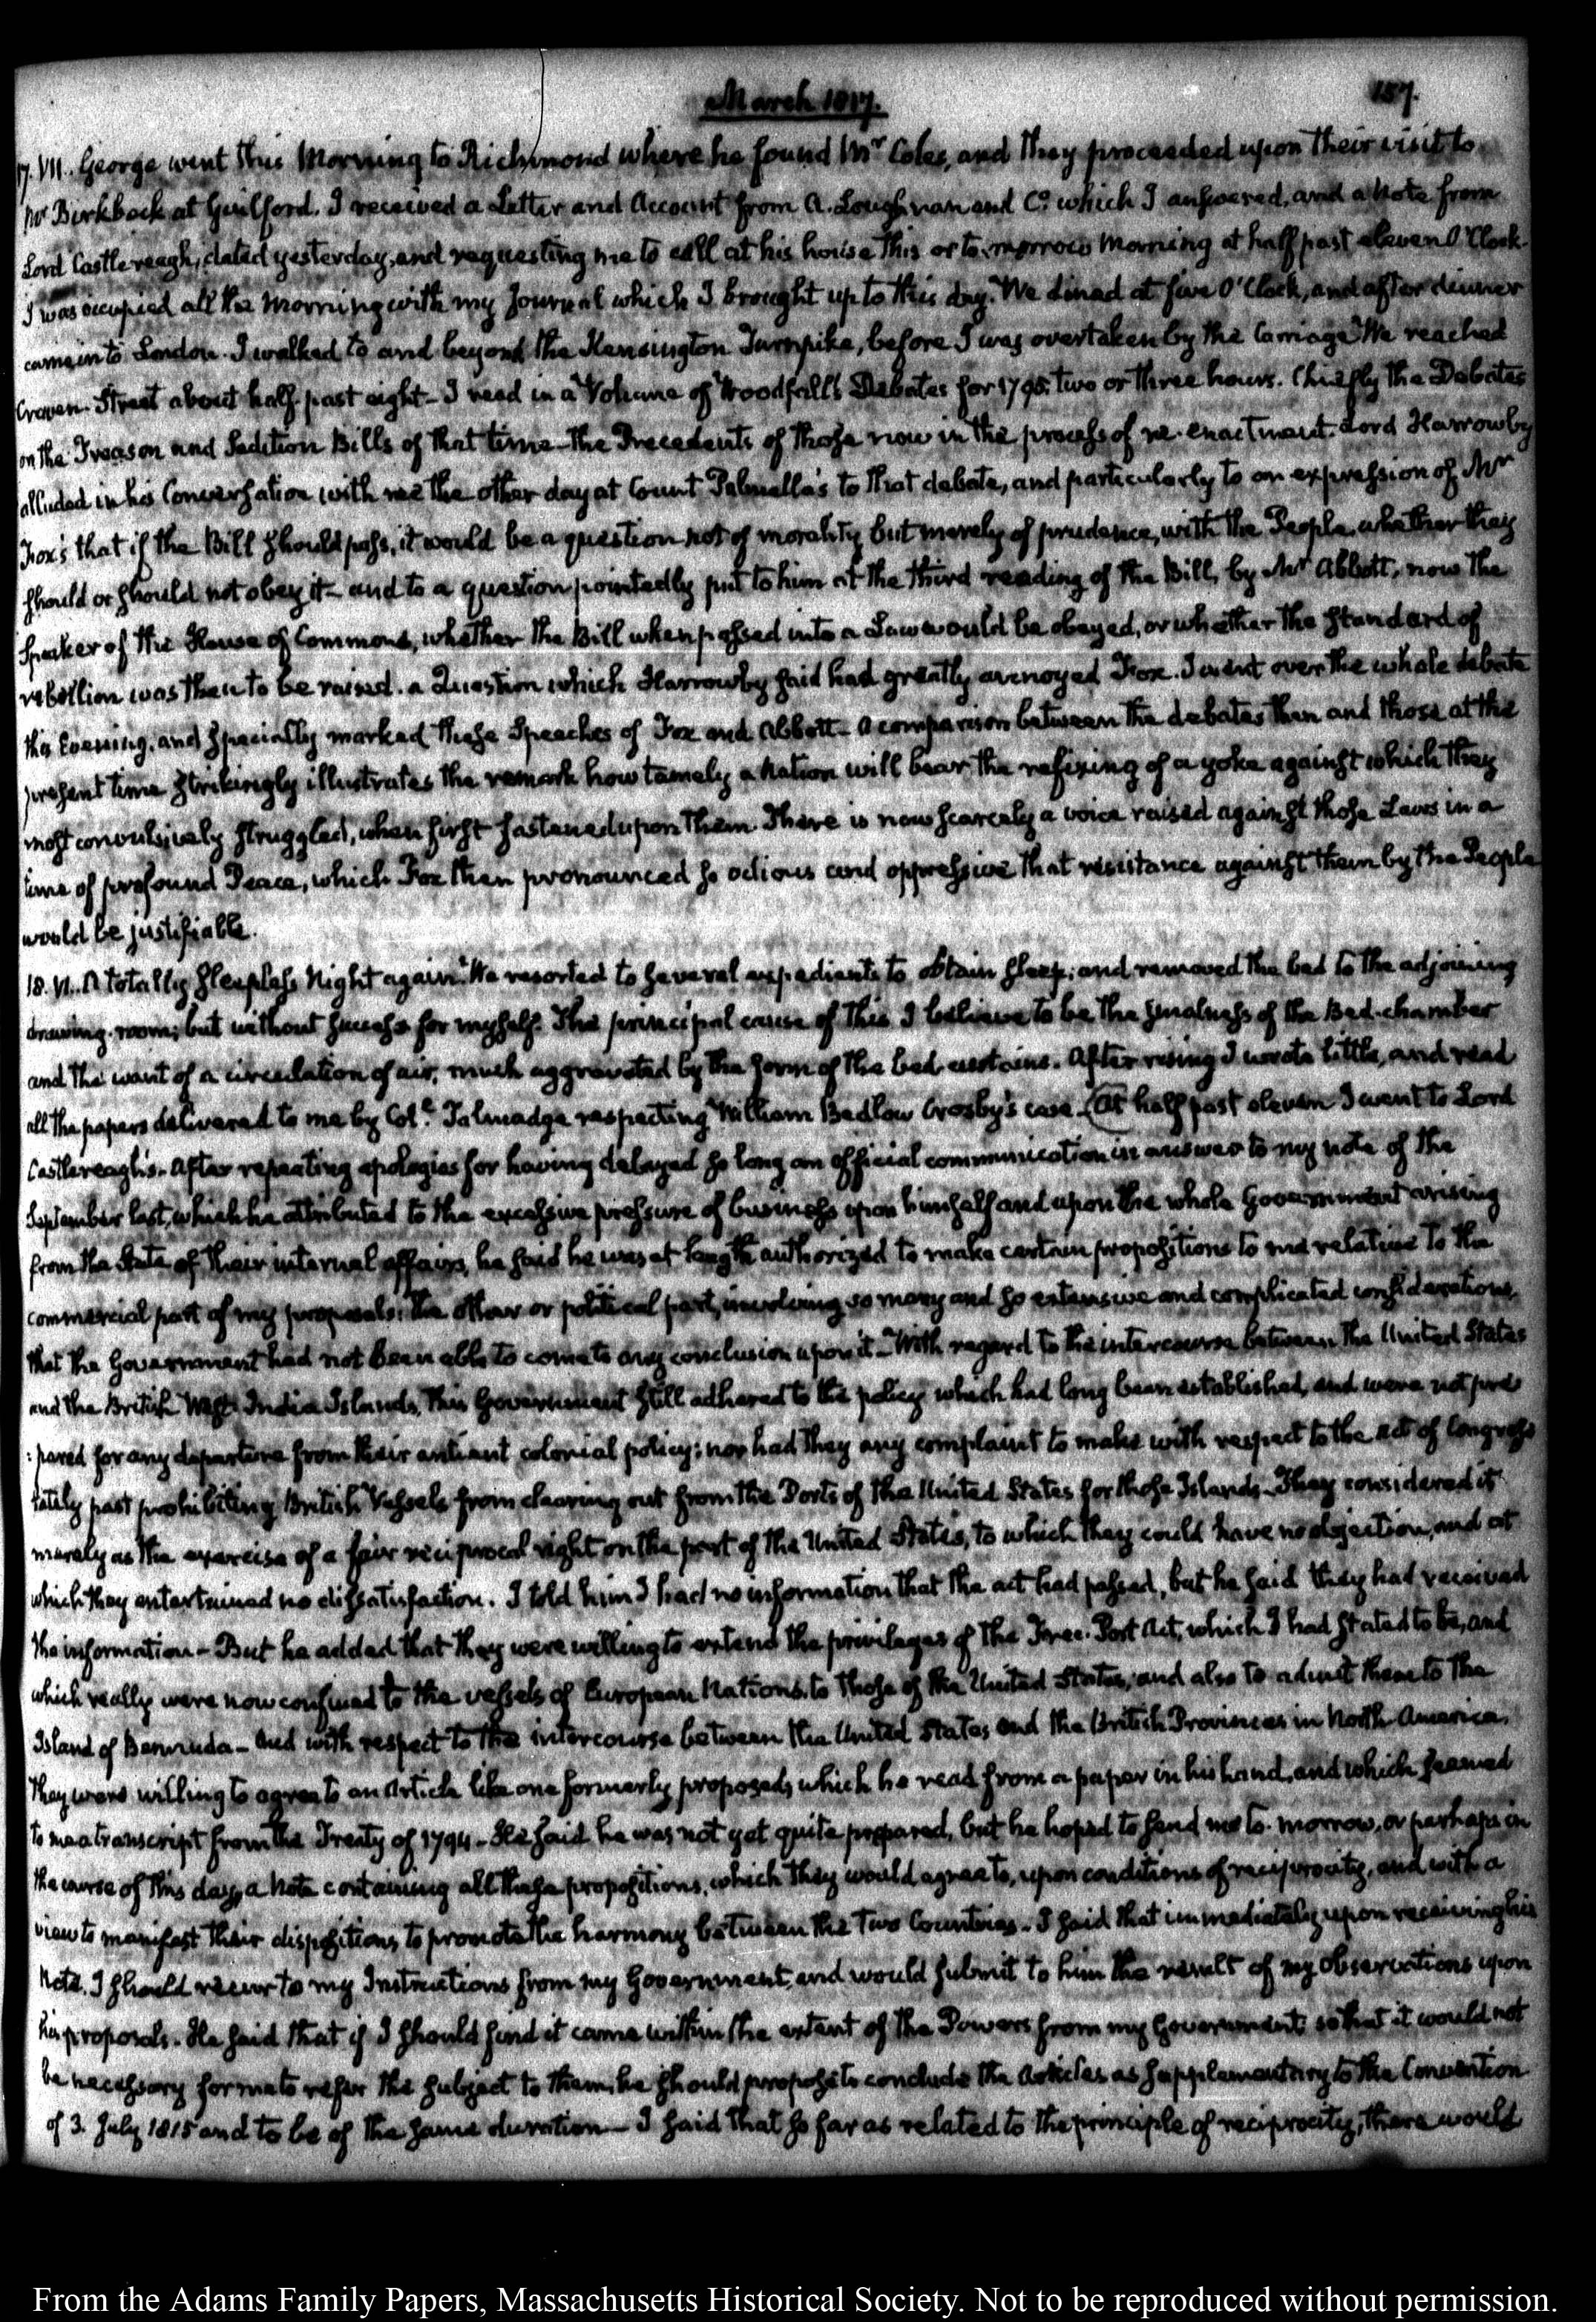 March 1817.
157.
17. VII. George went this Morning to Richmond where he found Mr Coles, and they proceeded upon their visit to
Mr Birkbeck at Guilford. I received a Letter and Account from A. Loughnan and Co. which I answered, and a Note from
Lord Castlereagh, dated yesterday, and requesting me to call at his house this or to-morrow Morning at half past eleven O'Clock.
I was occupied all the Morning with my Journal which I brought up to this day. We dined at five O'Clock, and after dinner
came into London. I walked to and beyond the Kensington Turnpike, before I was overtaken by the Carriage. We reached
Craven-Street about half-past eight - I read in a Volume of Woodfall's Debates for 1795. two or three hours. Chiefly the Debates
on the Treason and Sedition Bills of that time - the Precedents of those now in the process of re-enactment. Lord Harrowby
alluded in his Conversation with me the other day at Count Palmella's to that debate, and particularly to an expression of Mr
Fox's that if the Bill should pass, it would be a question not of morality but merely of prudence, with the People, whether they
should or should not obey it - and to a question pointedly put to him at the third reading of the Bill, by Mr Abbott, now the
Speaker of the House of Commons, whether the Bill when passed into a Law would be obeyed, or whether the standard of
rebellion was then to be raised. a Question which Harrowby said had greatly annoyed Fox. I went over the whole debate
this Evening, and specially marked these Speeches of Fox and Abbott - A comparison between the debates then and those at the
present time strikingly illustrates the remark how tamely a Nation will bear the refixing of a yoke against which they
most convulsively struggled, when first fastened upon them. There is now scarcely a voice raised against those Laws in a
time of profound Peace, which Fox then pronounced so odious and oppressive that resistance against them by the People
would be justifiable.
18. VI. A totally sleepless Night again. We resorted to several expedients to obtain sleep; and removed the bed to the adjoining
drawing-room; but without success for myself. The principal cause of this I believe to be the smallness of the Bed-chamber
and the want of a circulation of air, much aggravated by the form of the bed-curtains. After rising I wrote little, and read
all the papers delivered to me by Coll. Talmadge respecting William Bedlow Crosby's case - At half past eleven I went to Lord
Castlereagh's. After repeating apologies for having delayed so long an official communication in answer to my note of the
September last, which he attributed to the excessive pressure of business upon himself and upon the whole Government arising
from the state of their internal affairs, he said he was at length authorized to make certain propositions to me relative to the
commercial part of my proposals: the other or political part, involving so many and so extensive and complicated considerations,
that the Government had not been able to come to any conclusion upon it - With regard to the intercourse between the United States
and the British West India Islands, this Government still adhered to the policy which had long been established, and were not pre
:pared for any departure from their antient colonial policy; nor had they any complaint to make with respect to the act of Congress
lately past prohibiting British Vessels from clearing out from the Ports of the United States for those Islands - They considered it
merely as the exercise of a fair reciprocal right on the part of the United States, to which they could have no objection, and at
which they entertained no dissatisfaction. I told him I had no information that the act had passed, but he said they had received
the information - But he added that they were willing to extend the privileges of the Free-Port Act, which I had stated to be, and
which really were now confined to the vessels of European Nations, to those of the United States; and also to admit them to the
Island of Bermuda - And with respect to the intercourse between the United States and the British Provinces in North-America,
they were willing to agree to an Article like one formerly proposed, which he read from a paper in his hand, and which seemed
to me a transcript from the Treaty of 1794 - He said he was not yet quite prepared, but he hoped to send me to-morrow, or perhaps in
the course of this day, a Note containing all these propositions, which they would agree to, upon conditions of reciprocity, and with a
view to manifest their dispositions to promote the harmony between the two Countries - I said that immediately upon receiving his
Note, I should recur to my Instructions from my Government, and would submit to him the result of my observations upon
his proposals. He said that if I should find it came within the extent of the Powers from my Government, so that it would not
be necessary for me to refer the subject to them, he should propose to conclude the Articles as supplementary to the Convention
of 3. July 1815 and to be of the same duration - I said that so far as related to the principle of reciprocity, there would
From the Adams Family Papers, Massachusetts Historical Society. Not to be reproduced without permission.